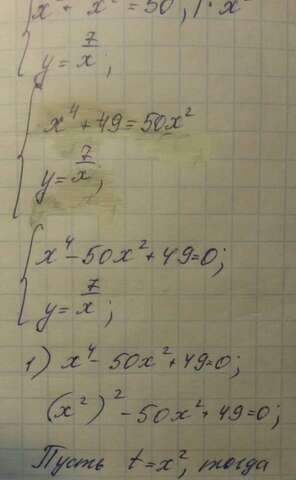 x² + x² = 50, | · x²
y = 7/x ;
x⁴ + 49 = 50x²
y = 7/x ;
x⁴ - 50x² + 49 = 0;
y = 7/x ;
1) x⁴ - 50x² + 49 = 0;
(x²)² - 50x² + 49 = 0;
Пусть t = x², тогда